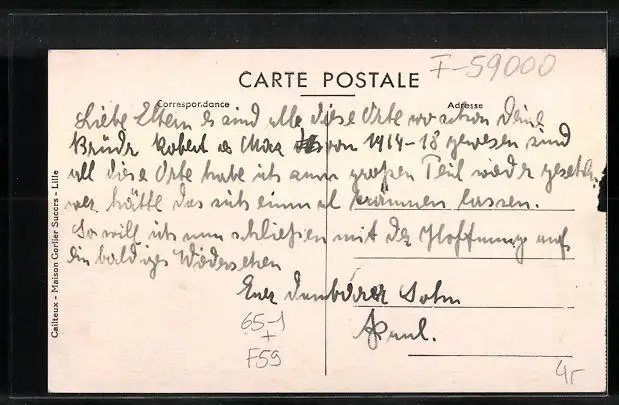 F-59000
CARTE POSTALE
Correspondance
Adresse
Liebe Eltern es sind alle diese Orte wo schon Deine
Brüder Robert von 1914-18 gewesen sind
all diese Orte habe ich zum großen Teil wieder gesehen.
wer hätte das sich einmal träumen lassen.
So will ich nun schließen mit der Hoffnung auf
ein baldiges Wiedersehen
Euer dankbarer Sohn
Paul.
65-1
+
F59
4,-
Cailteux - Maison Gorlier Succrs - Lille